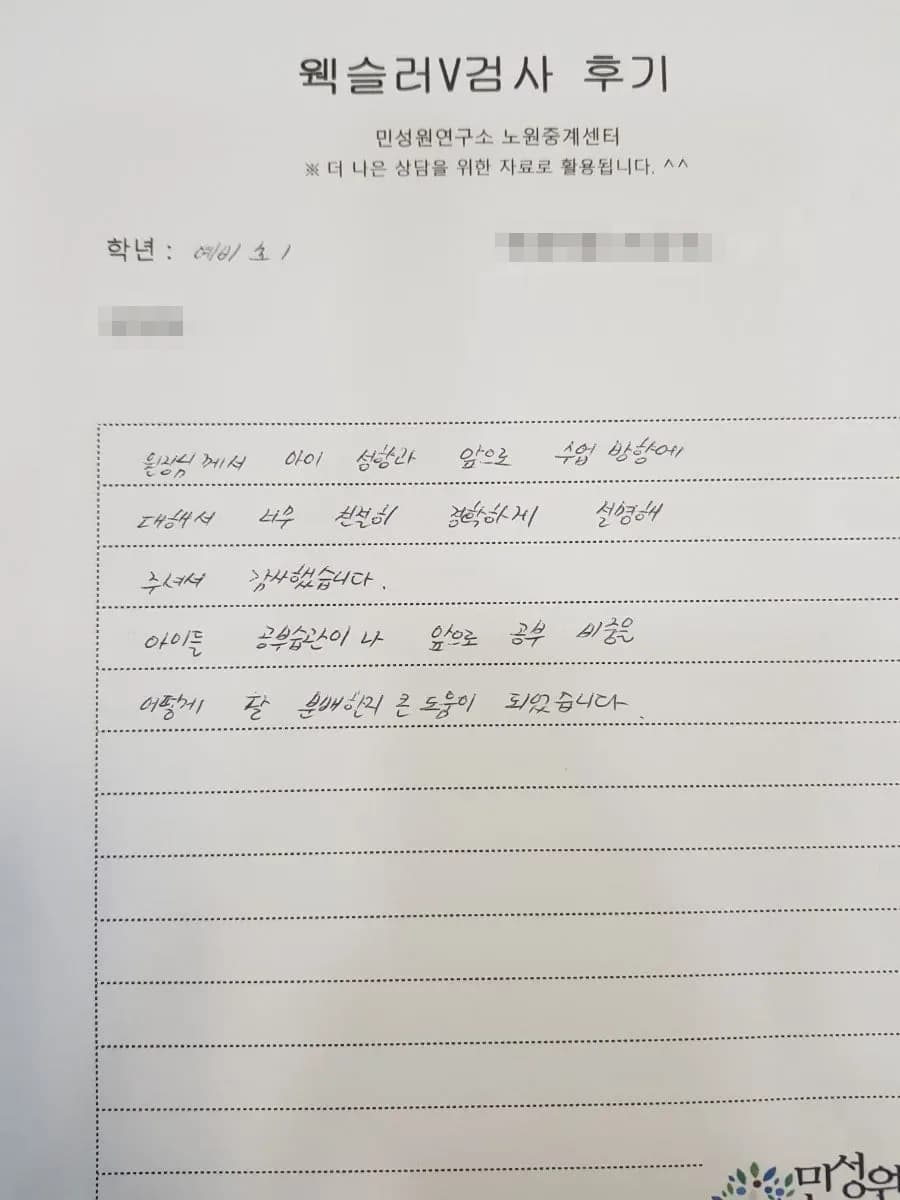 웩슬러V검사 후기
민성원연구소 노원중계센터
※ 더 나은 상담을 위한 자료로 활용됩니다. ^^
학년 : 예비 초1
원장님께서 아이 성향과 앞으로 수업 방향에
대해서 너무 친절히 정확하게 설명해
주셔서 감사했습니다.
아이들 공부습관이나 앞으로 공부 비중을
어떻게 분배한지 큰 도움이 되었습니다.
민성원